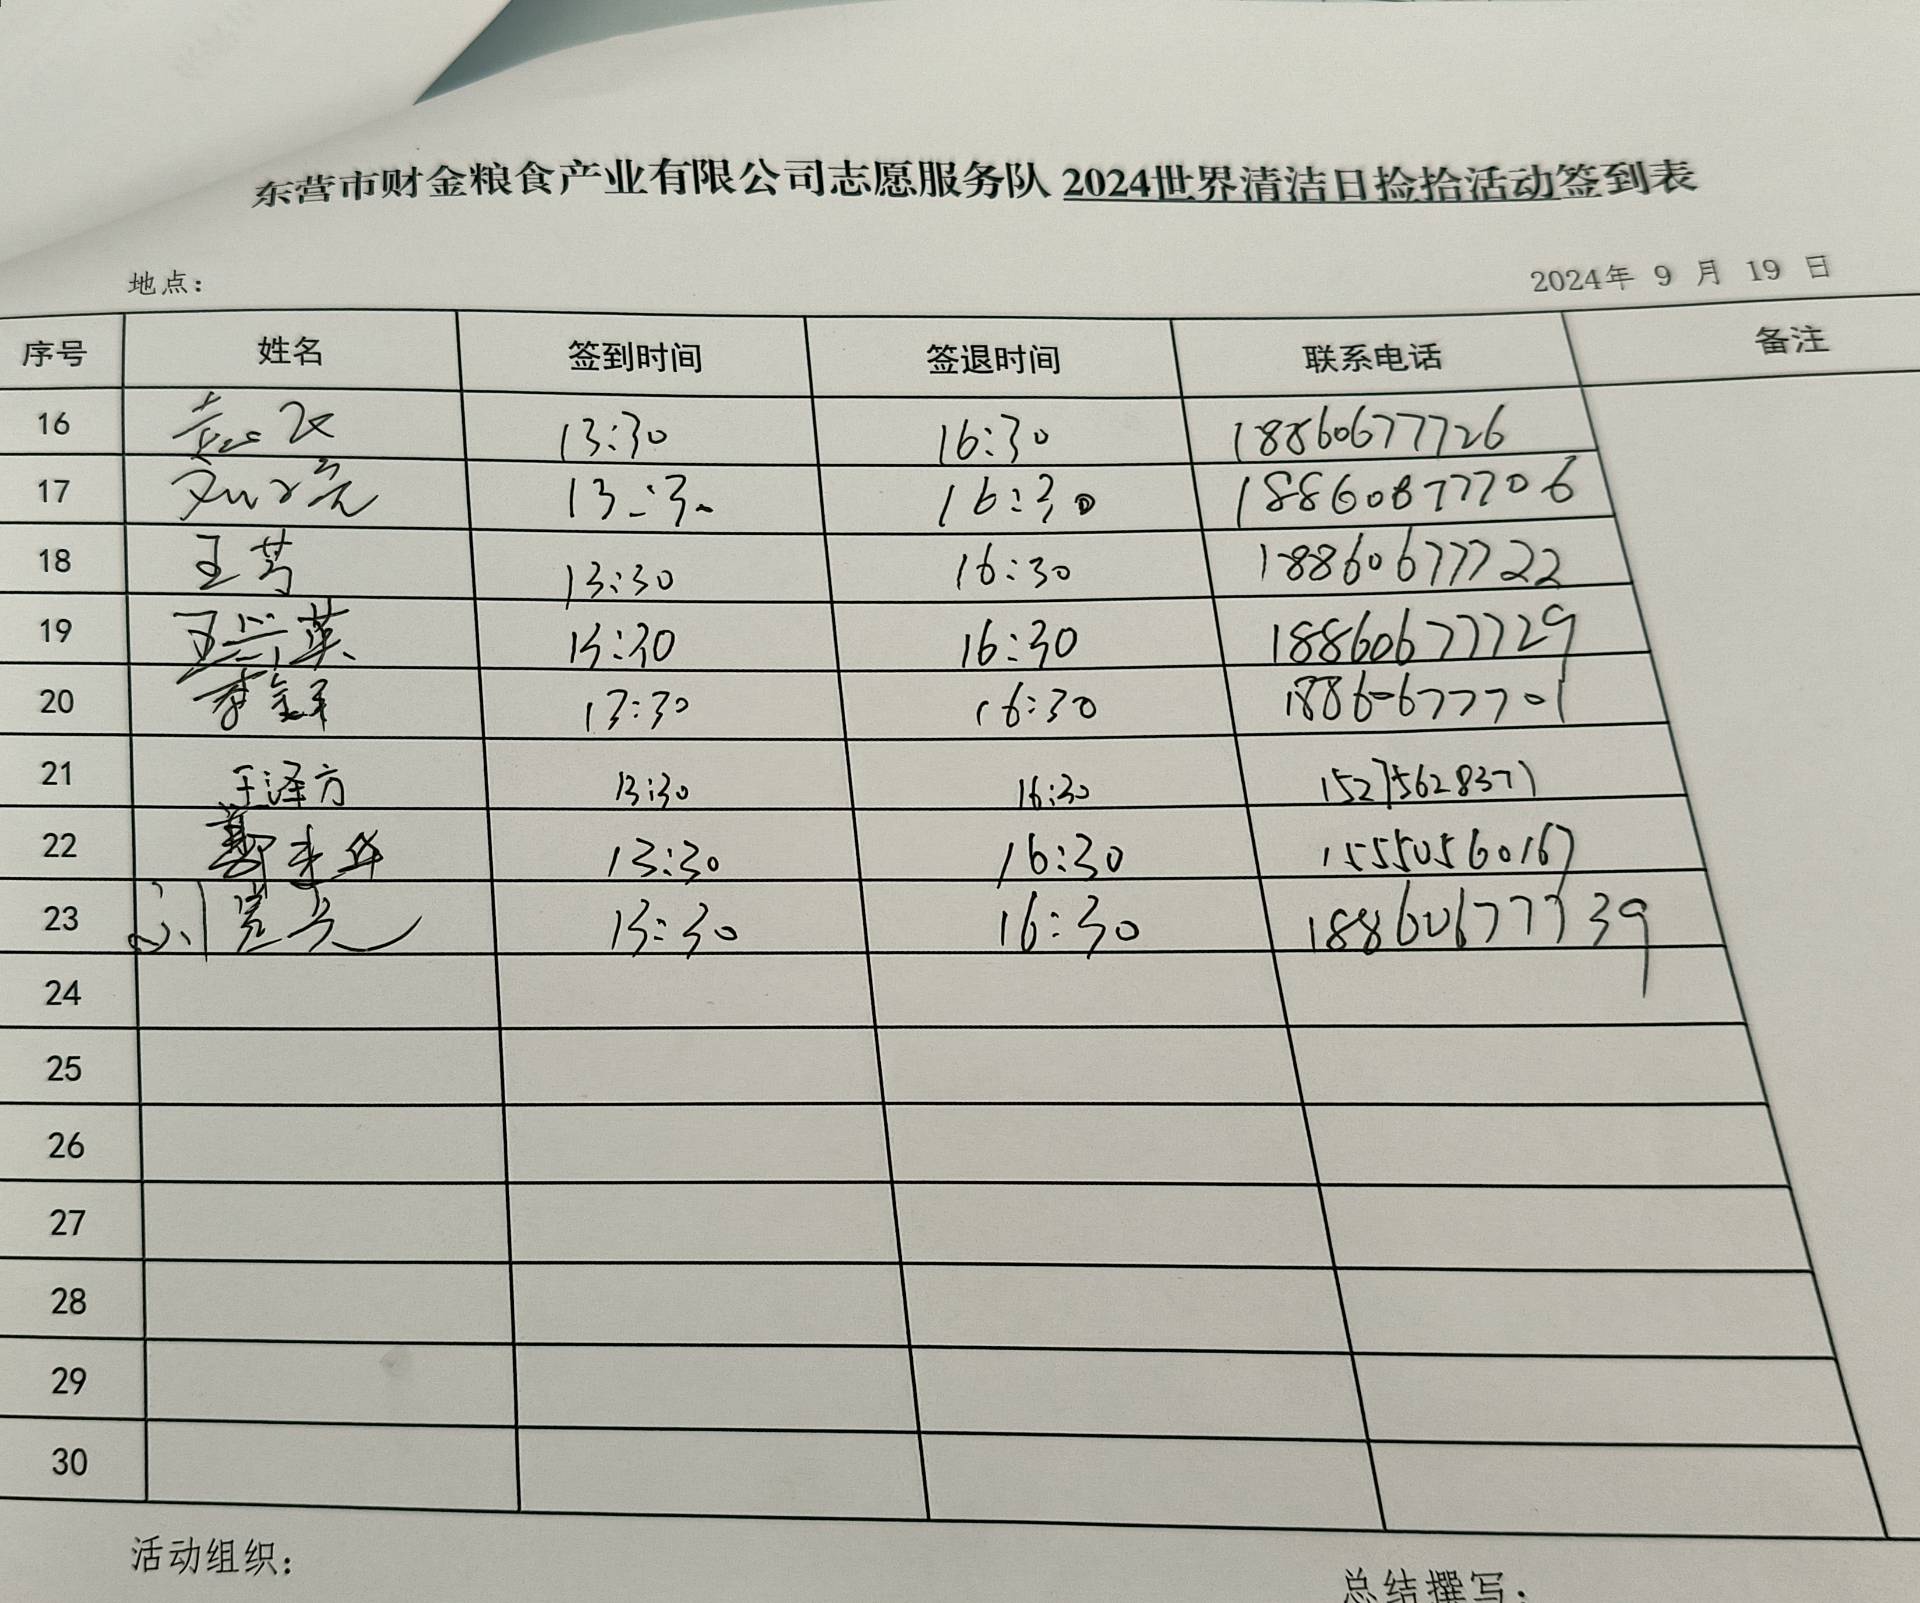 东营市财金粮食产业有限公司志愿服务队 2024世界清洁日捡拾活动签到表
地点：
2024年 9 月 19 日
序号 姓名 签到时间 签退时间 联系电话 备注
16 13:30 16:30 18860677726
17 13:30 16:30 18860877706
18 王芳 13:30 16:30 18860677722
19 王兴英 13:30 16:30 18860677729
20 李金祥 13:30 16:30 18860677701
21 王泽方 13:30 16:30 15275628371
22 13:30 16:30 15550560167
23 刘 13:30 16:30 18860677739
24
25
26
27
28
29
30
活动组织：
总结撰写：